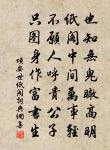 也知無鬼瞰高明
紙閣中間萬事輕
不願人呼貴公子
只圖身作富書生
項安世紙閣